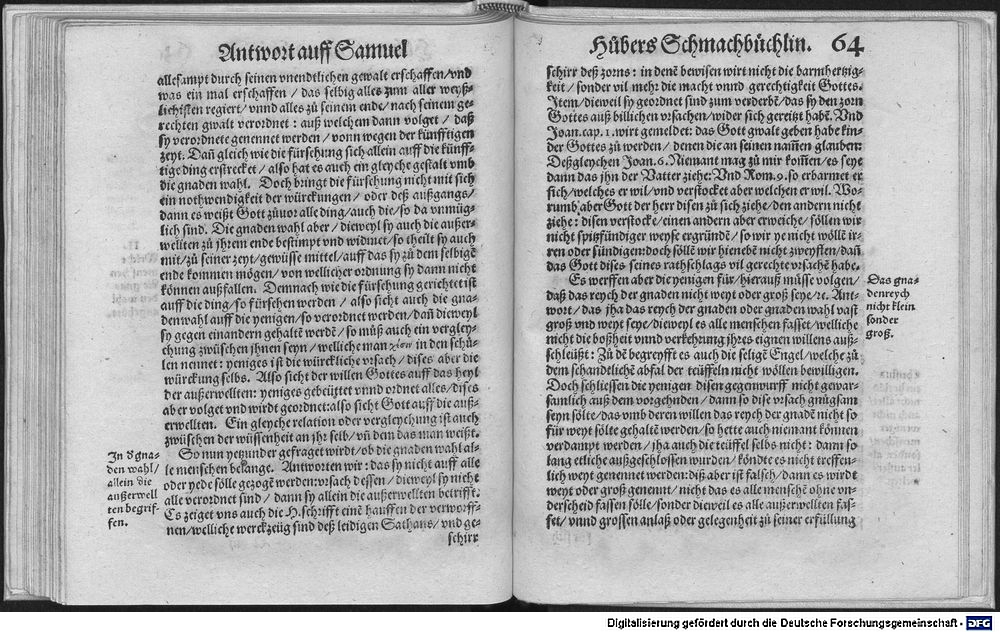 Antwort auff Samuel
allesampt durch seinen vnendtlichen gewalt erschaffen/vnd
was ein mal erschaffen / das selbig alles zum aller weyß-
lichisten regiert/ vnnd alles zů seinem ende/ nach seinem ge-
rechten gwalt verordnet : auß welchem dann volget / daß
sy verordnete genennet werden / vonn wegen der künfftigen
zeyt. Dañ gleich wie die fürsehung sich allein auff die künff-
tige ding erstrecket / also hat es auch ein gleyche gestalt vmb
die gnaden wahl. Doch bringt die fürsehung nicht mit sich
ein nothwendigkeit der würckungen / oder deß außgangs/
dann es weißt Gott zůuor alle ding/ auch die/ so da vnmüg-
lich sind. Die gnaden wahl aber / dieweyl sy auch die außer-
wellten zů jhrem ende bestimpt vnd widmet/ so theilt sy auch
mit/ zů seiner zeyt/ gewüsse mittel/ auff das sy zů dem selbigē
ende kommen mögen/ von wellicher ordnung sy dann nicht
können außfallen. Demnach wie die fürsehung gerichtet ist
auff die ding/ so fürsehen werden / also sicht auch die gna-
denwahl auff die yenigen/ so verordnet werden/ dañ dieweyl
sy gegen einandern gehaltē werdē/ so můß auch ein vergley-
chung zwüschen jhnen seyn/ welliche man in den schů-
len nennet: yeniges ist die würckliche vrsach/ dises aber die
würckung selbs. Also sicht der willen Gottes auff das heyl
der außerwellten: yeniges gebeüttet vnnd ordnet alles/ dises
aber volget vnd wirdt geordnet:also sicht Gott auff die auß-
erwellten. Ein gleyche relation oder vergleychung ist auch
zwüschen der wüssenheit an jhr selb/ vñ dem das man weißt.
So nun yetzunder gefraget wirdt/ ob die gnaden wahl al-
le menschen belange. Antworten wir : das sy nicht auff alle
oder yede sölle gezogē werden:vrsach dessen/ dieweyl sy nicht
alle verordnet sind / dann sy allein die außerwellten betrifft.
Es zeiget vns auch die H.schrifft einē hauffen der verworff-
nen/welliche werckzeüg sind deß leidigen Sathans/ vnd ge-
schirr
In d̕ gna-
den wahl/
allein die
außerwell
ten begrif-
fen.
Hůbers Schmachbüchlin. 64
schirr deß zorns : in denē bewisen wirt nicht die barmhertzig-
keit / sonder vil mehr die macht vnnd gerechtigkeit Gottes.
Item/ dieweil sy geordnet sind zum verderbē/ das sy den zorn
Gottes auß billichen vrsachen/wider sich gereitzt habē. Vnd
Joan.cap.1.wirt gemeldet: das Gott gwalt geben habe kin-
der Gottes zů werden / denen die an seinen nam̃en glauben:
Deßgleychen Joan.6.Niemant mag zů mir kom̃en/ es seye
dann das jhn der Vatter ziehe: Vnd Rom.9.so erbarmet er
sich/welches er wil/vnd verstocket aber welchen er wil. Wo-
rumb aber Gott der herr disen zů sich ziehe/ den andern nicht
ziehe : disen verstocke / einen andern aber erweiche/ söllen wir
nicht spitzfündiger weyse ergründē / so wir ye nicht wöllē ir-
ren oder sündigen:doch söllē wir hienebē nicht zweyflen/dañ
das Gott dises seines rathschlags vil gerechte vrsachē habe.
Es werffen aber die yenigen für/hierauß müsse volgen/
daß das reych der gnaden nicht weyt oder groß seye/ ꝛc. Ant-
wort/ das jha das reych der gnaden oder gnaden wahl vast
groß vnd weyt seye/ dieweyl es alle menschen fasset/welliche
nicht die boßheit vnnd verkehrung jhres eignen willens auß-
schleüßt: Zů dē begreyfft es auch die seligē Engel/welche zů
dem schandtlichē abfal der teüffeln nicht wöllen bewilligen.
Doch schliessen die yenigen disen gegenwurff nicht gewar-
samlich auß dem vorgehnden / dann so dise vrsach gnůgsam
seyn sölte/ das vmb deren willen das reych der gnadē nicht so
für weyt sölte gehaltē werden/ so hette auch niemant können
verdampt werden / jha auch die teüffel selbs nicht : dann so
lang etliche außgeschlossen wurden/ köndte es nicht treffen-
lich weyt genennet werden:diß aber ist falsch/ dann es wirdt
weyt oder groß genennt/ nicht das es alle menschē ohne vn-
derscheid fassen sölle/sonder dieweil es alle außerwellten fas-
set/ vnnd grossen anlaß oder gelegenheit zů seiner erfüllung
Das gna-
denreych
nicht klein
sonder
groß.
Digitalisierung gefördert durch die Deutsche Forschungsgemeinschaft - DFG